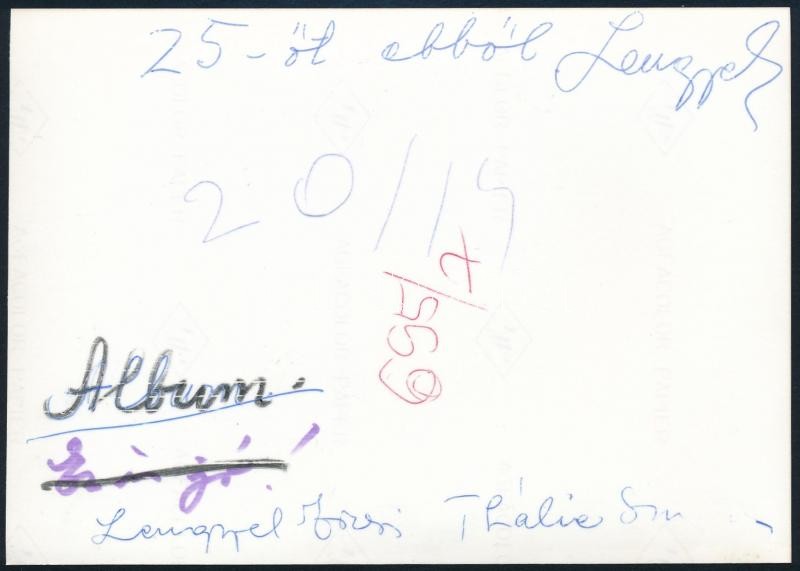 25-öt ebből Lengyel
20/19
695/7
Album.
jó!
Lengyel Józsi Thália